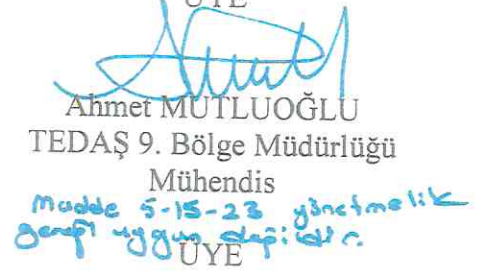 ÜYE
Ahmet MUTLUOĞLU
TEDAŞ 9. Bölge Müdürlüğü
Mühendis
Madde 5-15-23 yönetmelik
gereği uygun değildir.
ÜYE